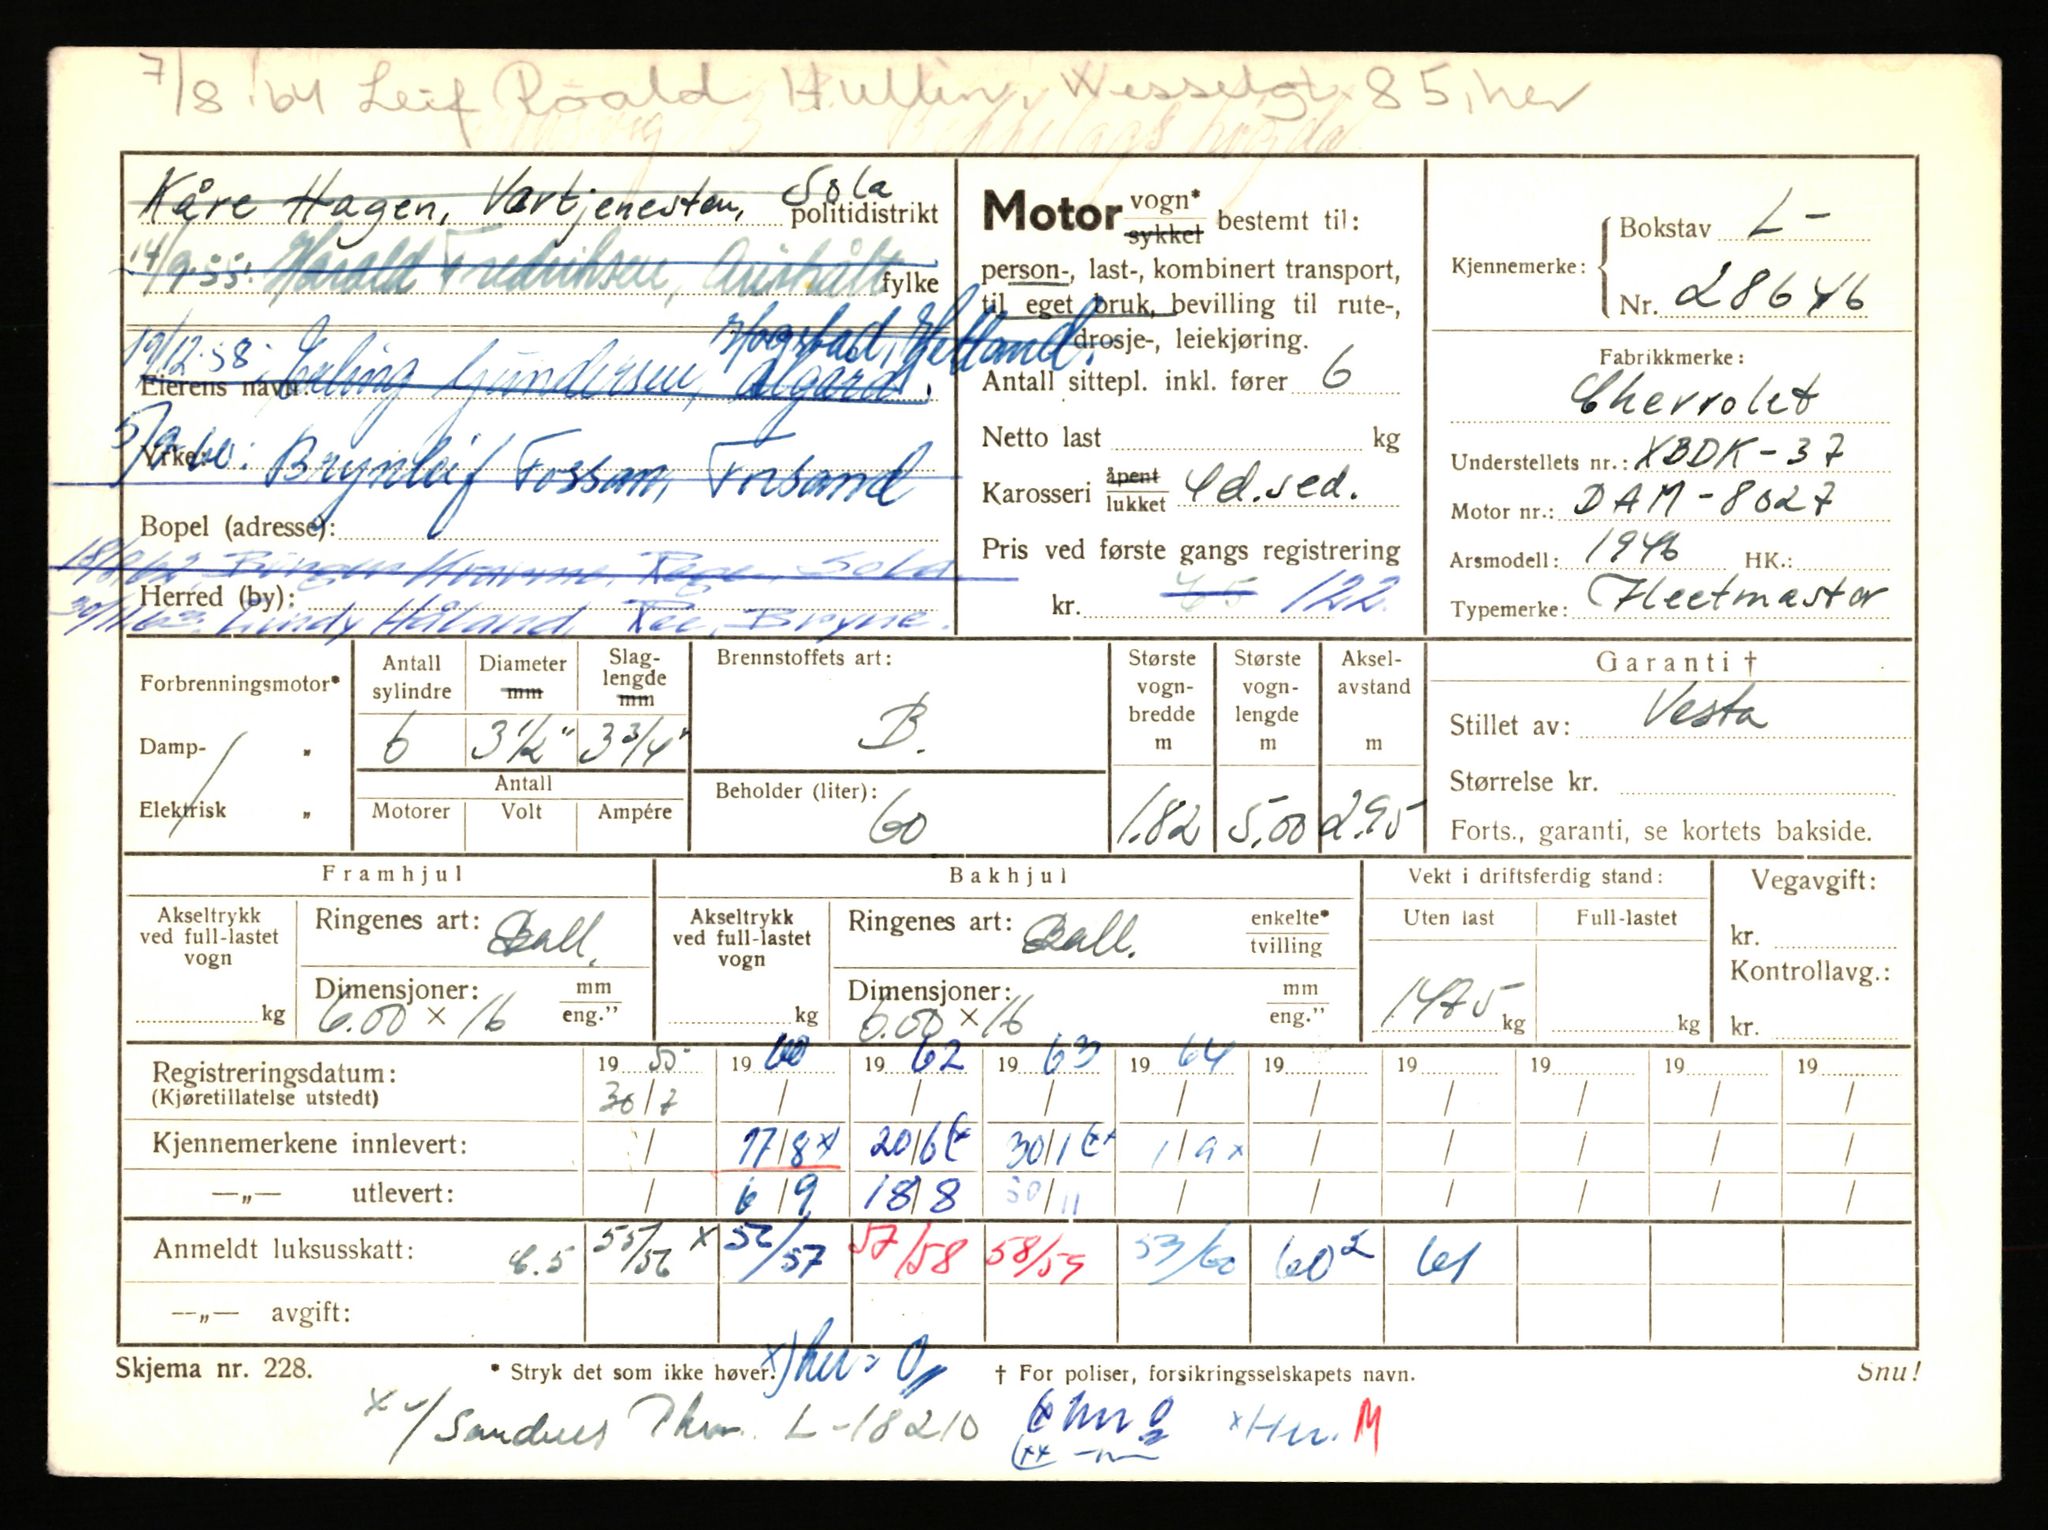 7/8 '64 Leif Roald Hullin, Wesselgt. 85, her
Kåre Hagen, Værtjenesten, Sola politidistrikt
14/9-55: Harald Fredriksen, fylke
19/12-58: Erling Gundersen, Ålgård. Hogstad, Hetland.
Eierens navn:
5/9-60: Brynleif Fossan, Forsand
Yrke:
Bopel (adresse):
18/8 62 Birger Kvamme, Rege, Sola
Herred (by):
30/11 63. Lindy Håland, Ree, Bryne.
Motor vogn* sykkel bestemt til:
person-, last-, kombinert transport,
til eget bruk, bevilling til rute-,
drosje-, leiekjøring.
Antall sittepl. inkl. fører 6
Netto last kg
Karosseri åpent lukket 4d.sed.
Pris ved første gangs registrering
kr. 65 122.
Kjennemerke: Bokstav L-
Nr. 28646
Fabrikkmerke:
Chevrolet
Understellets nr.: XBDK-37
Motor nr.: DAM-8027
Årsmodell: 1946 HK.:
Typemerke: Fleetmaster
Forbrenningsmotor*
Damp- "
Elektrisk "
Antall sylindre 6
Diameter mm 3 1/2"
Slaglengde mm 3 3/4"
Antall
Motorer Volt Ampére
Brennstoffets art:
B.
Beholder (liter):
60
Største vognbredde m 1.82
Største vognlengde m 5,00
Akselavstand m 2.95
Garanti †
Stillet av: Vesta
Størrelse kr.
Forts., garanti, se kortets bakside.
Framhjul
Akseltrykk ved full-lastet vogn kg
Ringenes art: Ball.
Dimensjoner: 6.00 × 16 mm eng."
Bakhjul
Akseltrykk ved full-lastet vogn kg
Ringenes art: Ball. enkelte* tvilling
Dimensjoner: 6.00 × 16 mm eng."
Vekt i driftsferdig stand:
Uten last Full-lastet
1475 kg kg
Vegavgift:
kr.
Kontrollavg.:
kr.
Registreringsdatum: 19 55 19 60 19 62 19 63 19 64 19 19 19 19 19
(Kjøretillatelse utstedt) 30/7 / / / / / / / / /
Kjennemerkene innlevert: / 17/8 x 20/6 (x 30/1 (xx 1/9 x / / / / /
—„— utlevert: / 6/9 18/8 30/11 / / / / / /
Anmeldt luksusskatt: 55/56 x 56/57 57/58 58/59 53/60 60² 61
—„— avgift:
Skjema nr. 228. * Stryk det som ikke høver. † For poliser, forsikringsselskapets navn. Snu!
L-18210 x Hn. M